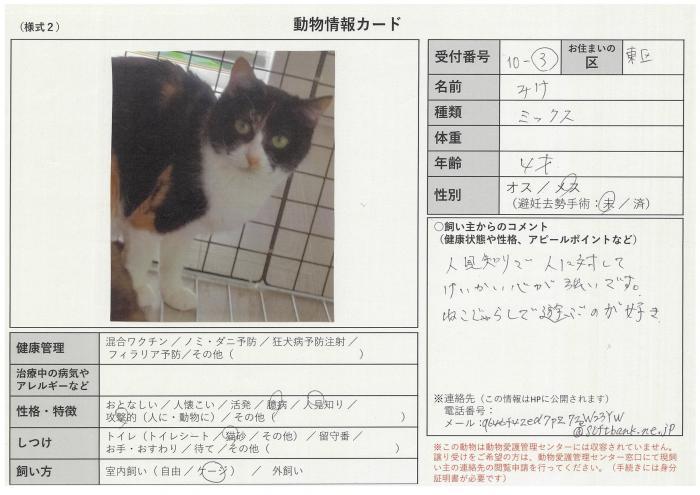 (様式2)
動物情報カード
受付番号 10-③ お住まいの区 東区
名前 みけ
種類 ミックス
体重
年齢 4才
性別 オス／メス
(避妊去勢手術：未／済)
○飼い主からのコメント
(健康状態や性格、アピールポイントなど)
人見知りで人に対して
けいかい心が強いです。
ねこじゃらしで遊ぶのが好き
※連絡先（この情報はHPに公開されます）
電話番号：
メール：
@softbank.ne.jp
※この動物は動物愛護管理センターには収容されていません。
譲り受けをご希望の方は、動物愛護管理センター窓口にて現飼
い主の連絡先の閲覧申請を行ってください。（手続きには身分
証明書が必要です）
健康管理 混合ワクチン／ノミ・ダニ予防／狂犬病予防注射／
フィラリア予防／その他（ ）
治療中の病気や
アレルギーなど
性格・特徴 おとなしい／人懐こい／活発／臆病／人見知り／
攻撃的（人に・動物に）／その他（ ）
しつけ トイレ（トイレシート／猫砂／その他）／留守番／
お手・おすわり／待て／その他（ ）
飼い方 室内飼い（自由／ケージ） ／ 外飼い